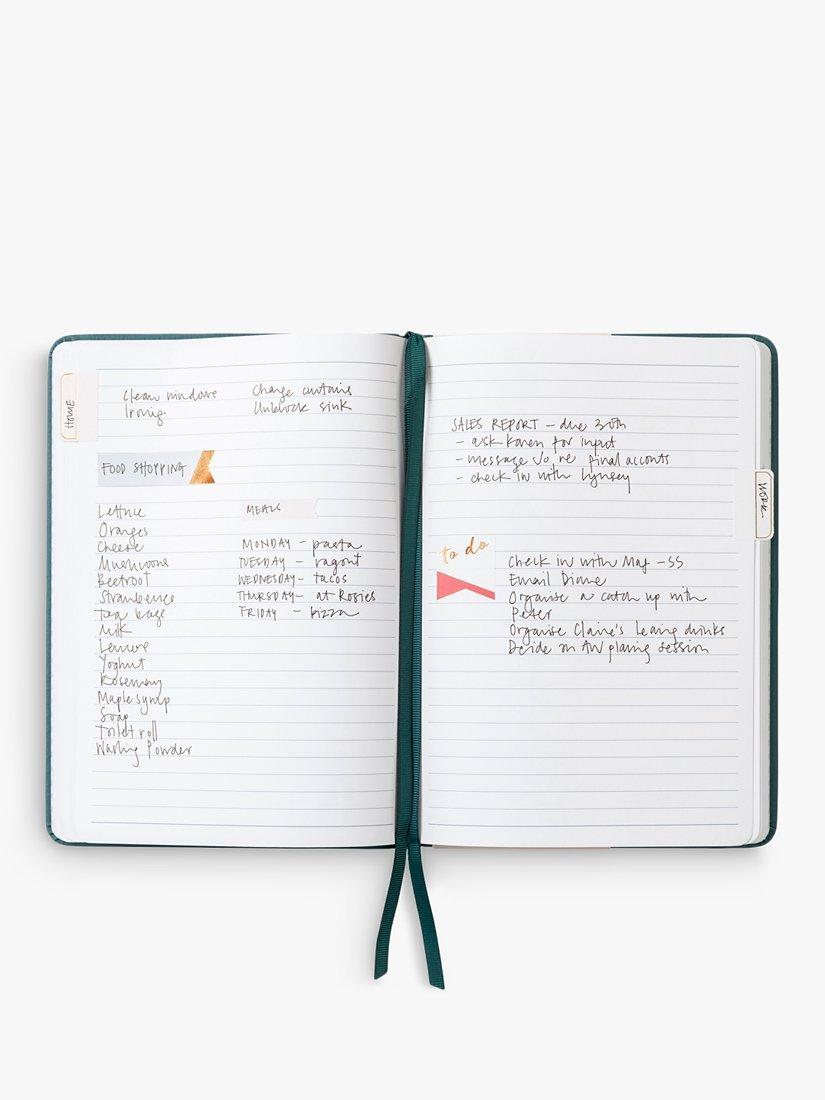 HOME
Clean windows
Ironing
Change curtains
Unblock sink
FOOD SHOPPING
Lettuce
Oranges
Cheese
Mushrooms
Beetroot
Strawberries
Tea bags
Milk
Lemons
Yoghurt
Rosemary
Maple syrup
Soap
Toilet roll
Washing Powder
MEALS
MONDAY - pasta
TUESDAY - ragout
WEDNESDAY - tacos
THURSDAY - at Rosies
FRIDAY - pizza
SALES REPORT - due 30th
- ask Karen for input
- message Jo re final acconts
- check in with Lynsey
WORK
to do
Check in with May - SS
Email Diane
Organise a catch up with
Peter
Organise Claire's leaving drinks
Decide on AW planing session